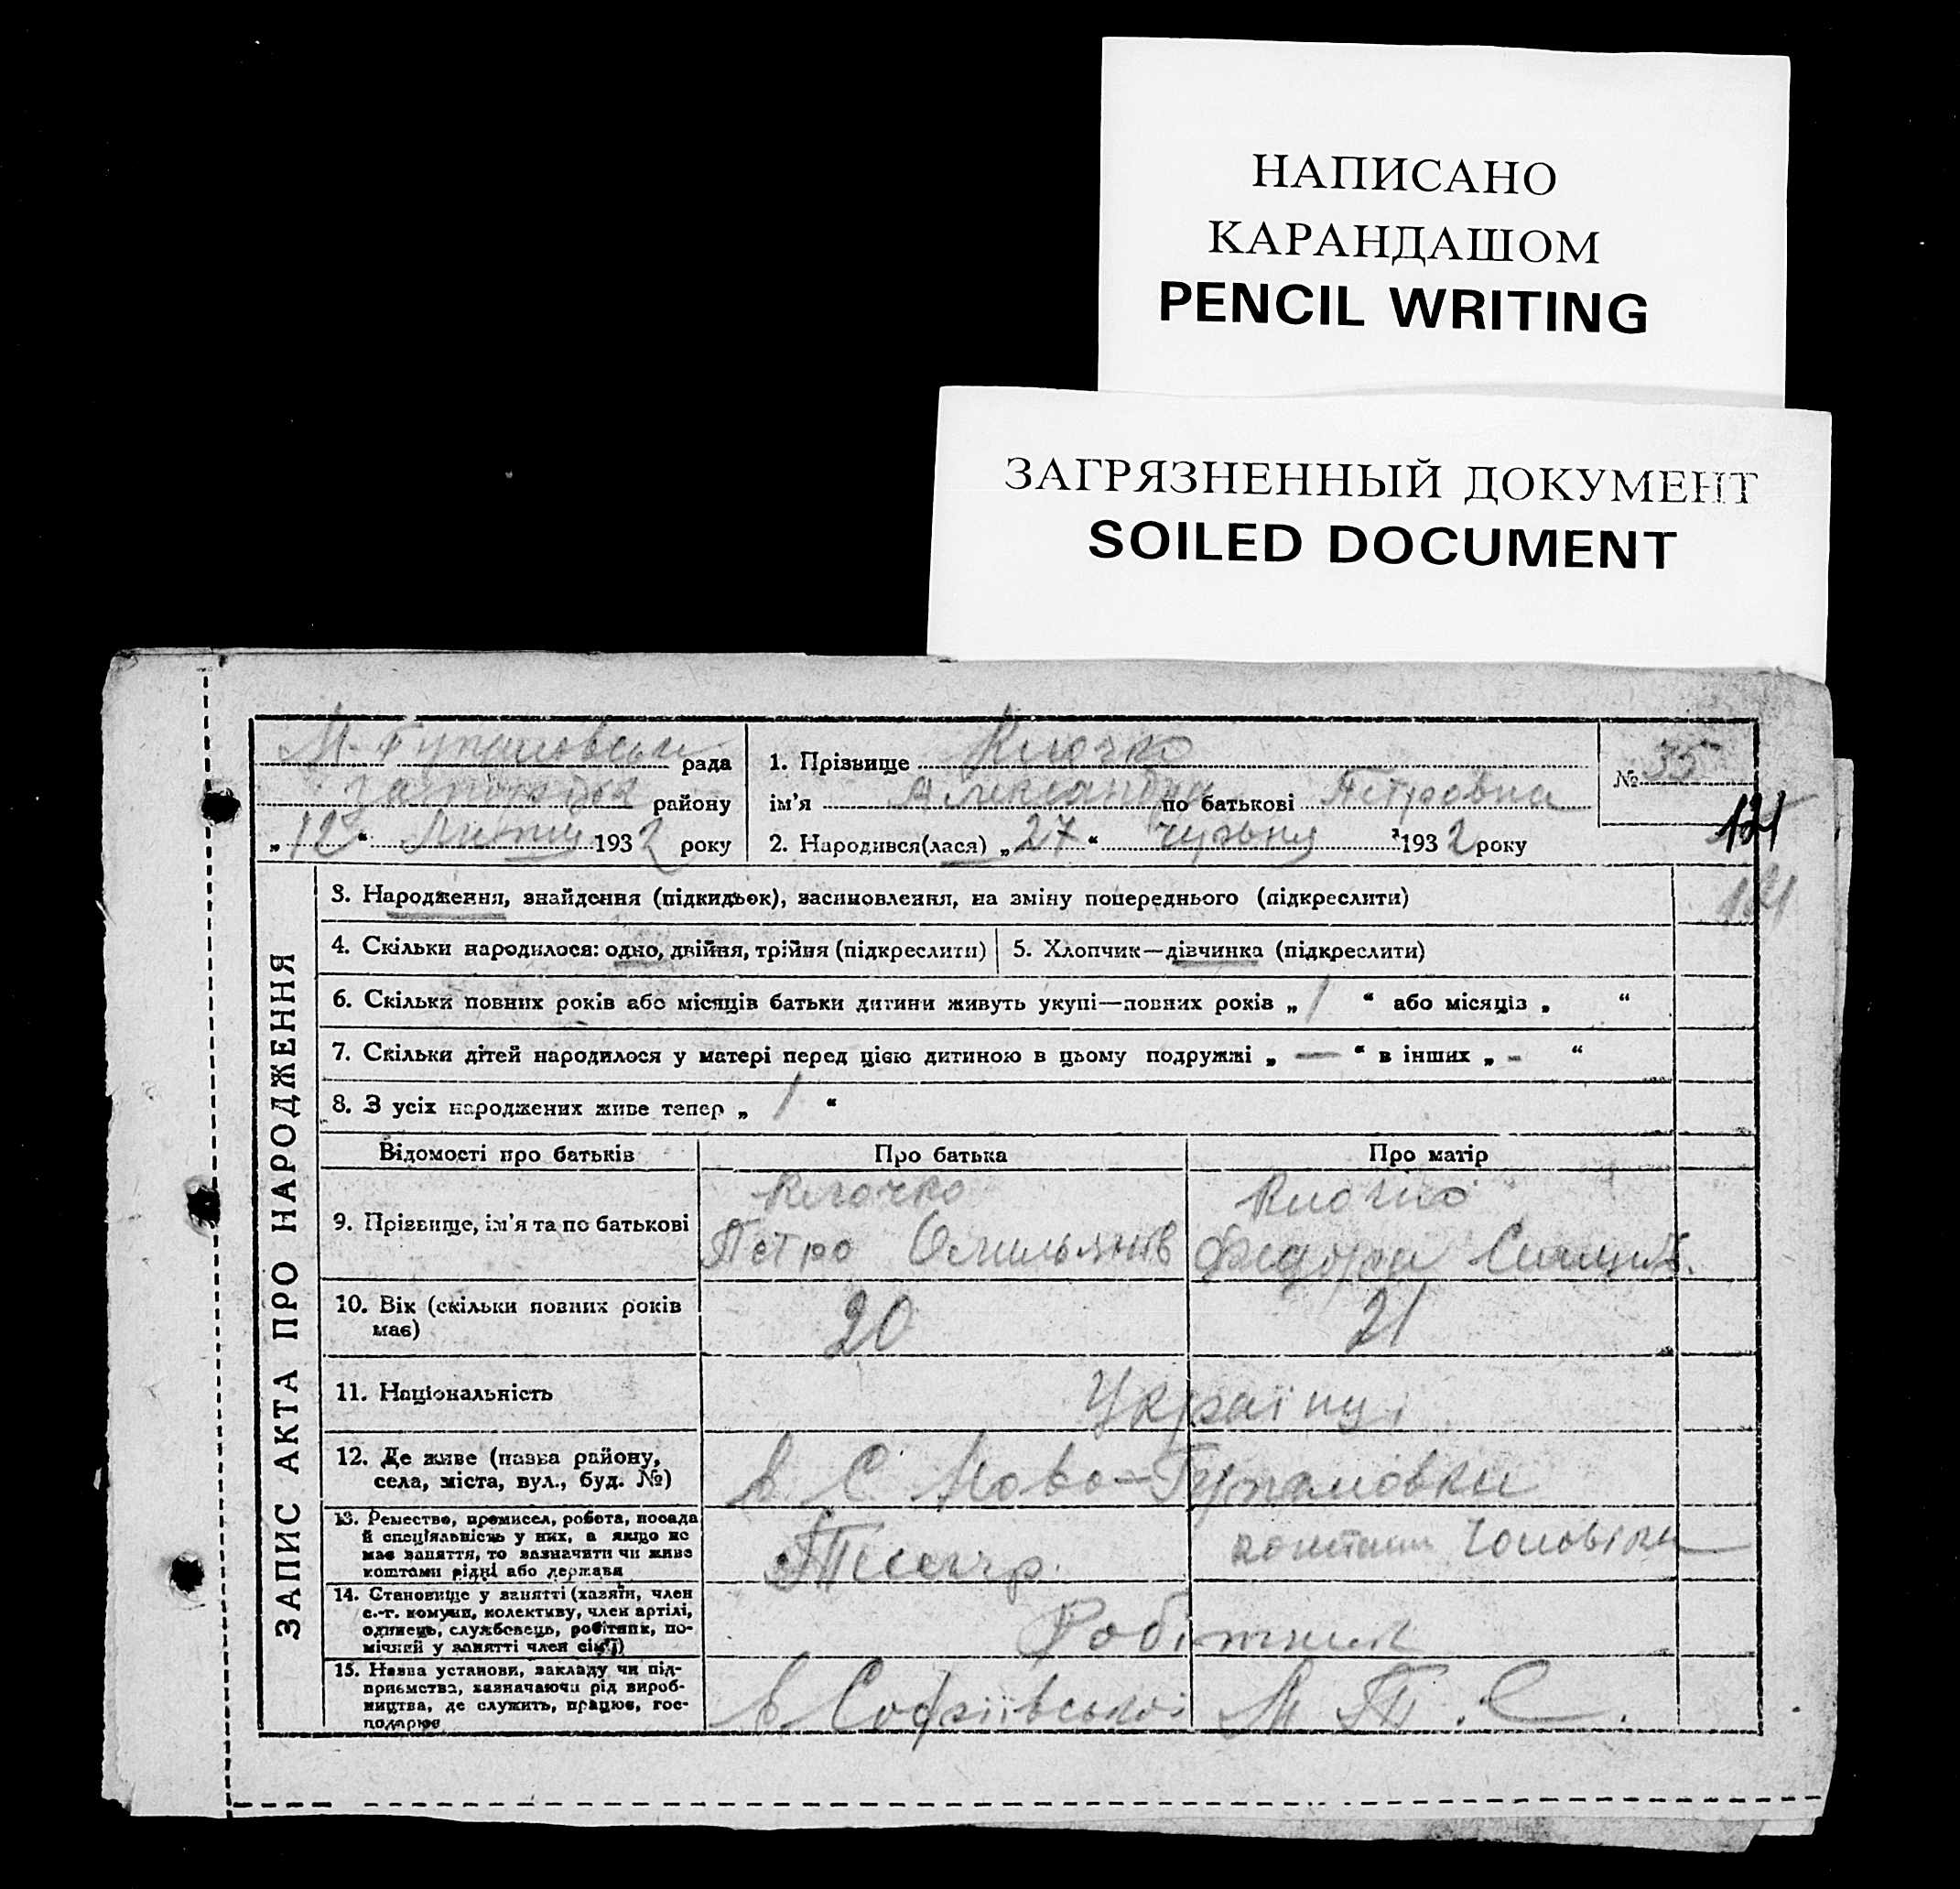 НАПИСАНО
КАРАНДАШОМ
PENCIL WRITING
ЗАГРЯЗНЕННЫЙ ДОКУМЕНТ
SOILED DOCUMENT
рада
району
„12“ 1932 року
1. Прізвище Клочко
ім'я Александра по батькові Петровна
2. Народився(лася) „27“ червня 1932 року
№ 35
121
121
ЗАПИС АКТА ПРО НАРОДЖЕННЯ
3. Народження, знайдення (підкидьок), всиновлення, на зміну попереднього (підкреслити)
4. Скільки народилося: одно, двійня, трійня (підкреслити)
5. Хлопчик—дівчинка (підкреслити)
6. Скільки повних років або місяців батьки дитини живуть укупі—повних років „1“ або місяців „ “
7. Скільки дітей народилося у матері перед цією дитиною в цьому подружжі „—“ в інших „-“
8. З усіх народжених живе тепер „1“
Відомості про батьків
Про батька
Про матір
9. Прізвище, ім'я та по батькові
Клочко
Петро Омельянів
Клочко
Федора
10. Вік (скільки повних років
має)
20
21
11. Національність
Українці
12. Де живе (назва району,
села, міста, вул., буд. №)
в С. Ново-Гупаловки
13. Ремество, промисел, робота, посада
й спеціяльність у них, а якщо не
має заняття, то зазначити чи живе
коштами рідні або держави
коштами чоловіка
14. Становище у занятті (хазяїн, член
с.-г. комуни, колективу, член артілі,
одинець, службовець, робітник, по-
мічний у занятті член сім'ї)
Робітник
15. Назва установи, закладу чи під-
приємства, зазначаючи рід вироб-
ництва, де служить, працює, гос-
подарює
в Софіївській М.Т.С.